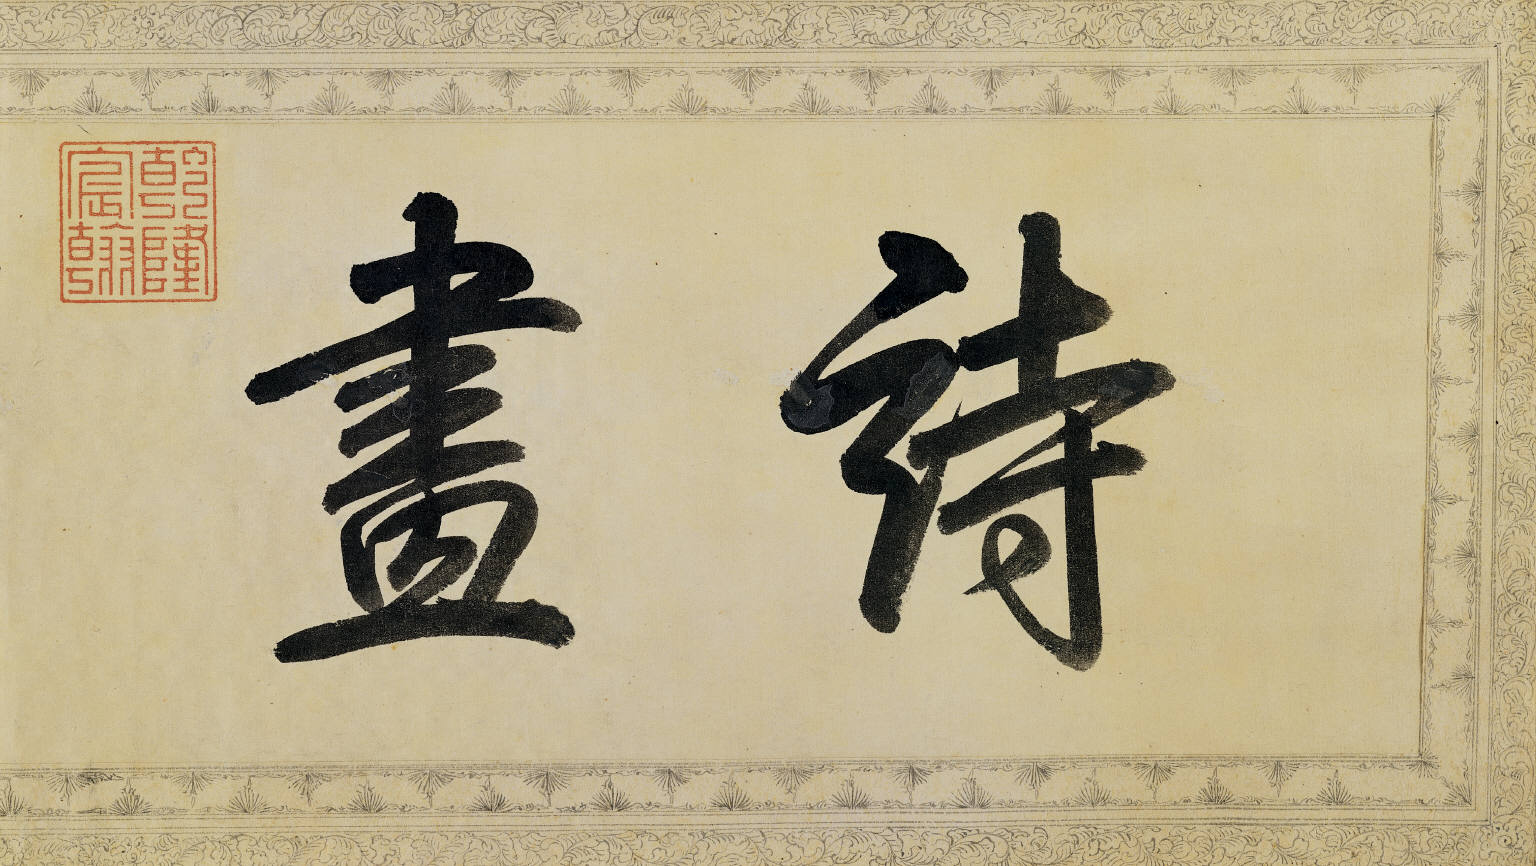 詩畫
乾隆宸翰